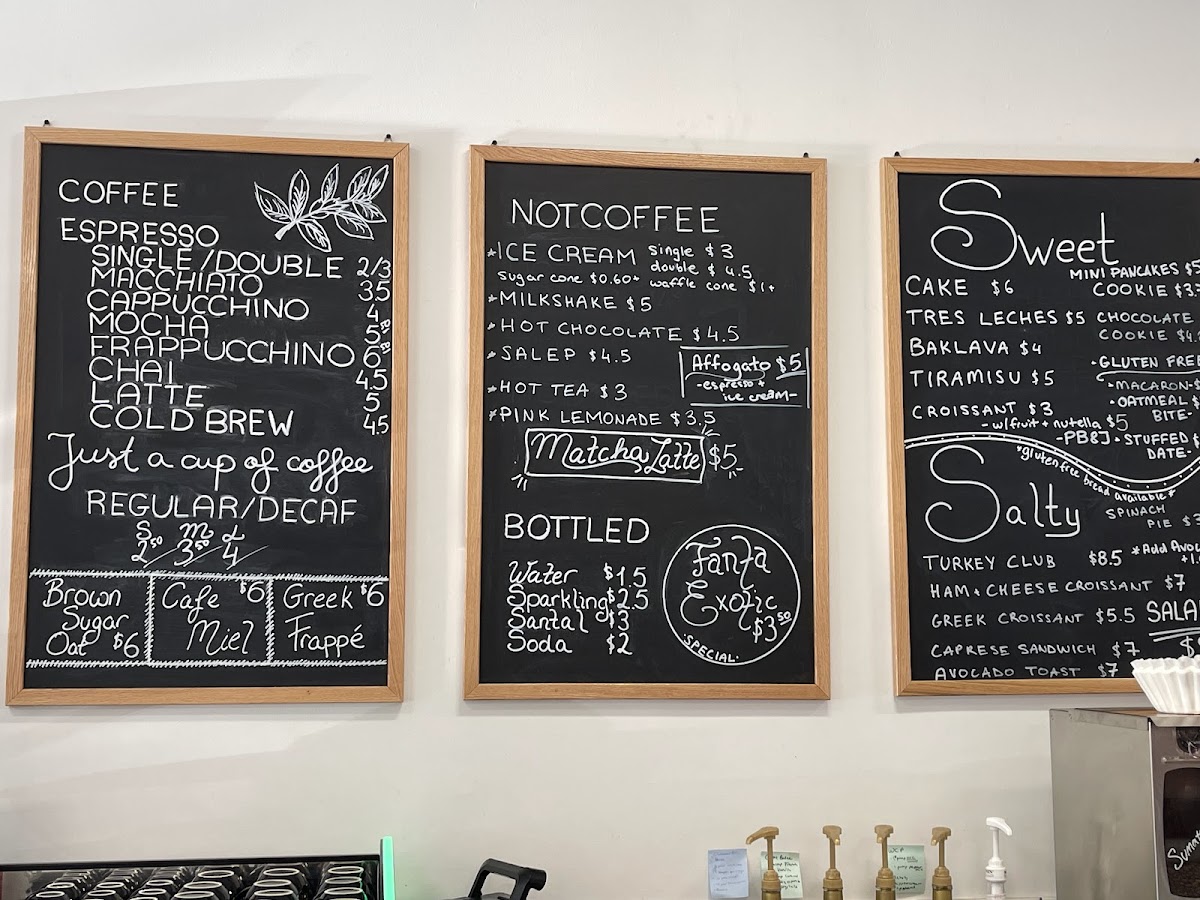 COFFEE
ESPRESSO
SINGLE/DOUBLE 2/3
MACCHIATO 3.5
CAPPUCCHINO 4
MOCHA 5
FRAPPUCCHINO 6
CHAI 4.5
LATTE 5
COLD BREW 4.5
Just a cup of coffee
REGULAR/DECAF
S M L
2.50 3.50 4
Brown Sugar Oat $6
Cafe Miel $6
Greek Frappé $6
NOTCOFFEE
*ICE CREAM single $3
double $4.5
sugar cone $0.60+ waffle cone $1+
*MILKSHAKE $5
*HOT CHOCOLATE $4.5
*SALEP $4.5
Affogato $5
-espresso +
ice cream-
*HOT TEA $3
*PINK LEMONADE $3.5
Matcha Latte $5
BOTTLED
Water $1.5
Sparkling $2.5
Santal $3
Soda $2
Fanta
Exotic
$3.50
·SPECIAL·
Sweet
MINI PANCAKES $5
CAKE $6
COOKIE $3.
TRES LECHES $5
CHOCOLATE
COOKIE $4.
BAKLAVA $4
·GLUTEN FREE
TIRAMISU $5
·MACARON-$
·OATMEAL $
BITE-
CROISSANT $3
-w/fruit + nutella $5
-PB&J
·STUFFED $
DATE-
*gluten free bread available*
Salty
SPINACH
PIE $
TURKEY CLUB $8.5
*Add Avoc
HAM & CHEESE CROISSANT $7
GREEK CROISSANT $5.5
SALA
CAPRESE SANDWICH $7
AVOCADO TOAST $7